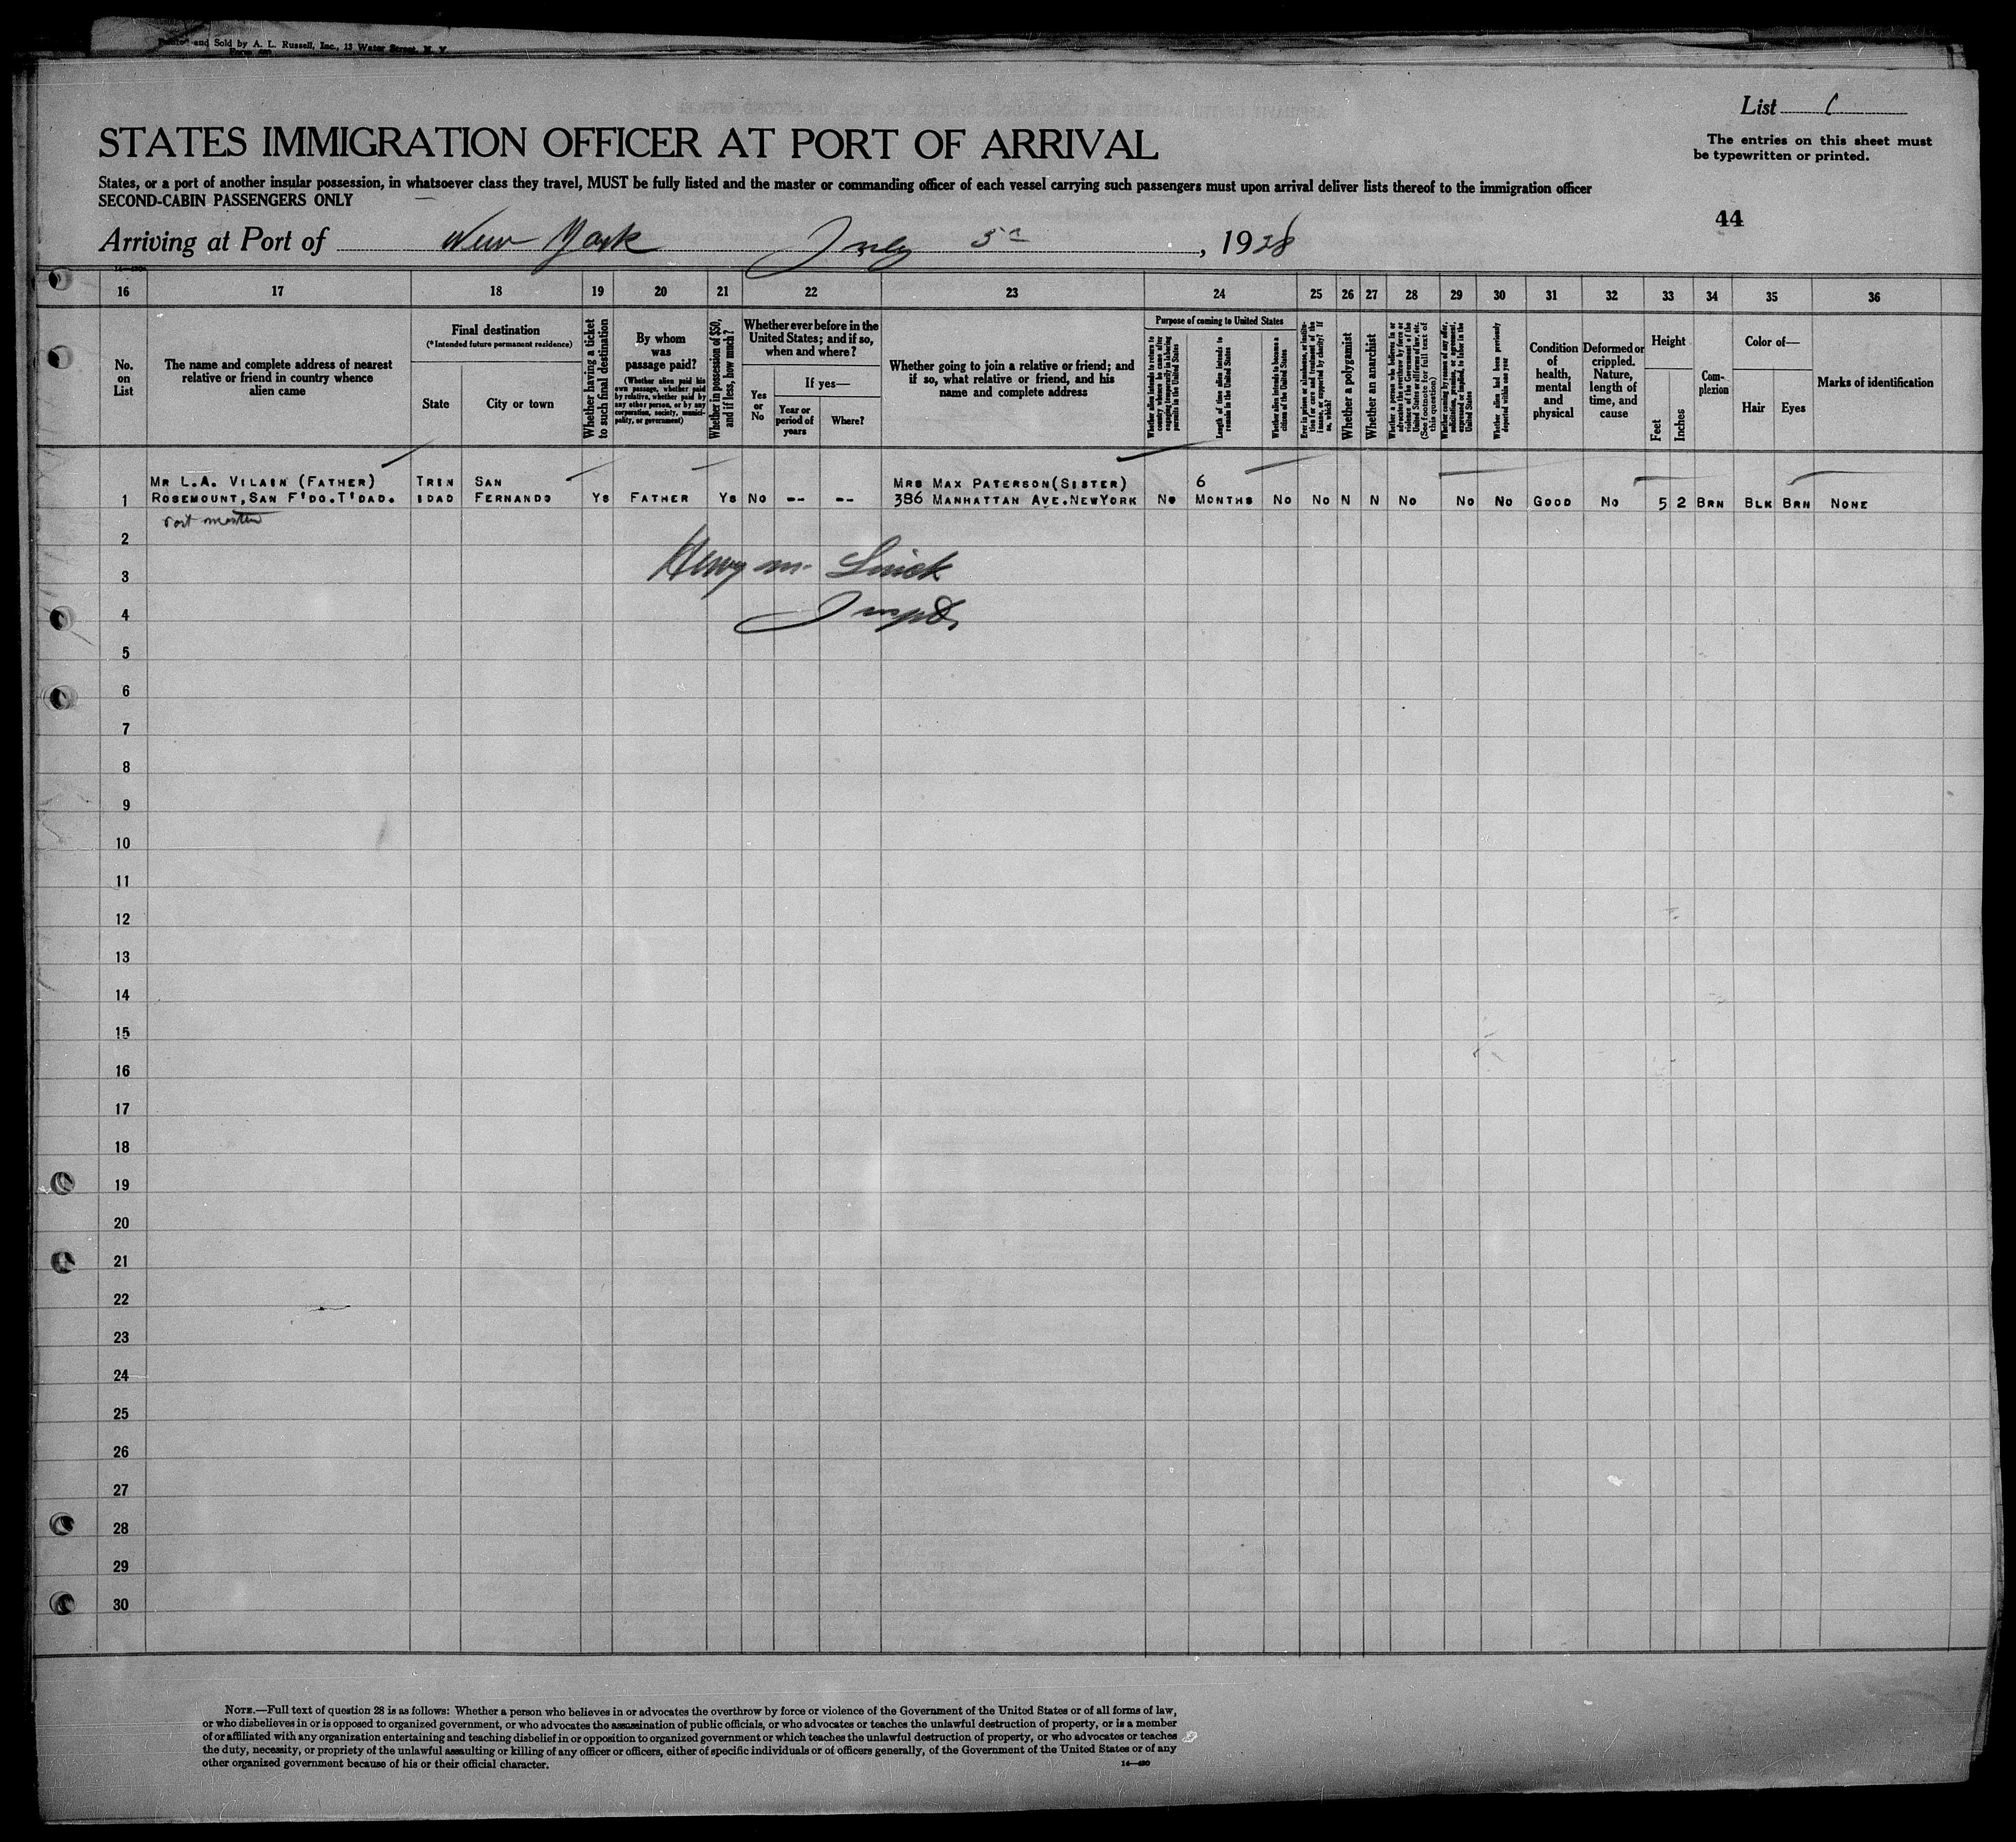 and Sold by A. L. Russell, Inc., 13 Water Street, N. Y.
List
The entries on this sheet must
be typewritten or printed.
STATES IMMIGRATION OFFICER AT PORT OF ARRIVAL
States, or a port of another insular possession, in whatsoever class they travel, MUST be fully listed and the master or commanding officer of each vessel carrying such passengers must upon arrival deliver lists thereof to the immigration officer
SECOND-CABIN PASSENGERS ONLY
44
Arriving at Port of New York July 5, 1928
16 17 18 19 20 21 22 23 24 25 26 27 28 29 30 31 32 33 34 35 36
No.
on
List
The name and complete address of nearest
relative or friend in country whence
alien came
Final destination
(*Intended future permanent residence)
State
City or town
Whether having a ticket
to such final destination
By whom
was
passage paid?
(Whether alien paid his
own passage, whether paid
by relative, whether paid by
any other person, or by any
corporation, society, munici-
pality, or government)
Whether in possession of $50,
and if less, how much?
Whether ever before in the
United States; and if so,
when and where?
Yes
or
No
If yes—
Year or
period of
years
Where?
Whether going to join a relative or friend; and
if so, what relative or friend, and his
name and complete address
Purpose of coming to United States
Whether alien intends to return to
country whence he came after
engaging temporarily in laboring
pursuits in United States
Length of time alien intends to
remain in the United States
Whether alien intends to become a
citizen of the United States
Ever in prison or almshouse, or institu-
tion for care and treatment of the
insane, or supported by charity? If
so, which?
Whether a polygamist
Whether an anarchist
Whether a person who believes in or
advocates the overthrow by force or
violence of the Government of the
United States or all forms of law, etc.
(See footnote for full text of
this question)
Whether coming by reason of any offer,
solicitation, promise, or agreement,
expressed or implied, to labor in the
United States
Whether alien had been previously
deported within one year
Condition
of
health,
mental
and
physical
Deformed or
crippled.
Nature,
length of
time, and
cause
Height
Feet
Inches
Com-
plexion
Color of—
Hair
Eyes
Marks of identification
MR L.A. VILAIN (FATHER) TRIN SAN MRS MAX PATERSON(SISTER) 6
1 ROSEMOUNT,SAN F'DO.T'DAD. IDAD FERNANDO YS FATHER YS NO -- -- 386 MANHATTAN AVE.NEWYORK NO MONTHS NO NO N N NO NO NO GOOD NO 5 2 BRN BLK BRN NONE
2
3
4
5
6
7
8
9
10
11
12
13
14
15
16
17
18
19
20
21
22
23
24
25
26
27
28
29
30
NOTE.—Full text of question 28 is as follows: Whether a person who believes in or advocates the overthrow by force or violence of the Government of the United States or of all forms of law,
or who disbelieves in or is opposed to organized government, or who advocates the assassination of public officials, or who advocates or teaches the unlawful destruction of property, or is a member
of or affiliated with any organization entertaining and teaching disbelief in or opposition to organized government or which teaches the unlawful destruction of property, or who advocates or teaches
the duty, necessity, or propriety of the unlawful assaulting or killing of any officer or officers, either of specific individuals or of officers generally, of the Government of the United States or of any
other organized government because of his or their official character.
14—480